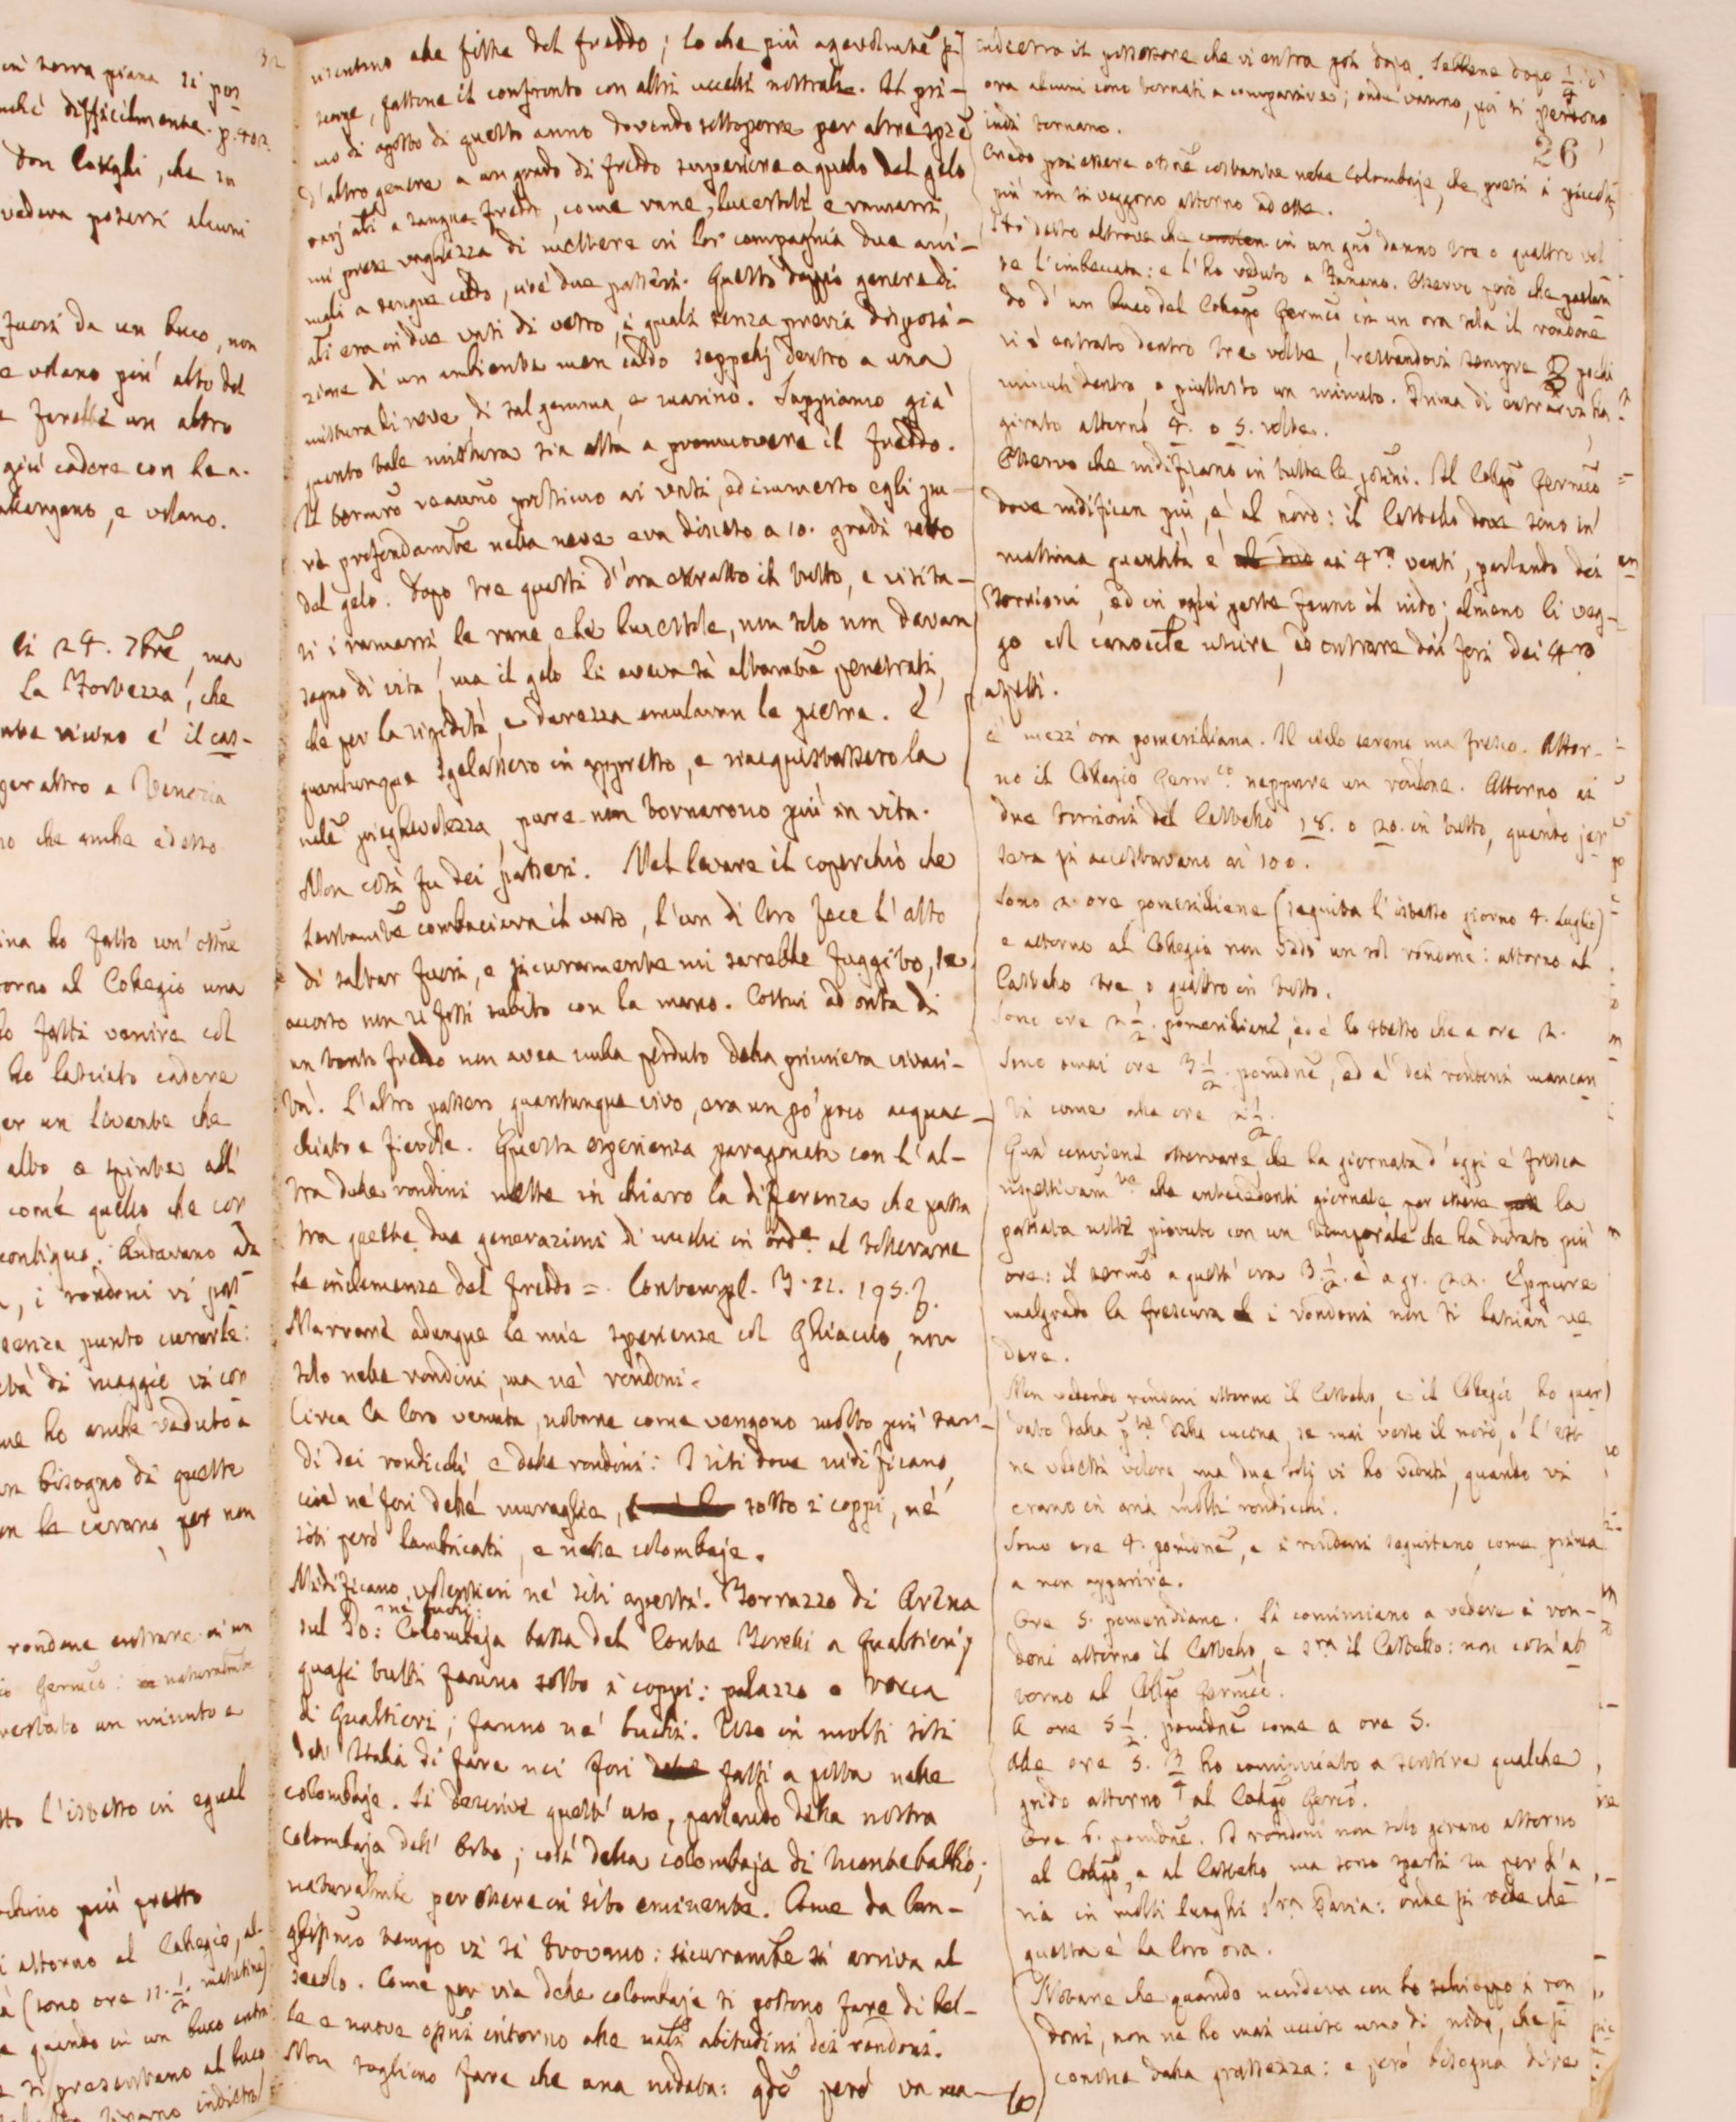 in terra piana si pos
difficilmente. p. 402.
don luoghi, che in
vedeva posarsi alcuni
fuori da un buco, non
e volano più alto del
un altro
giù cadere con le a-
e volano.
li 24. 7bre, ma
la Fortezza, che
vicino è il cas-
per altro a Venezia
che anche adesso
ho fatto un'
al Collegio una
fatti venire col
ho lasciato cadere
per un levante che
alto, e spinte all'
come quello che con
contiguo: Andavano
i rondoni vi pos
senza punto curarle:
di maggio vi con
ho anche veduto
bisogno di queste
le curano per non
rondone entrare in un
naturalmte
restato un minuto e
l'istesso in egual
più presto
attorno al Collegio, al-
(sono ore 11. 1/2. matutine)
quando in un buco entra
si presentano al buco
indietro
ventino alle fitte del freddo; lo che più agevolmte si
scorge, fattone il confronto con altri uccelli nostrali. Il pri-
mo di agosto di questo anno dovendo sottoporre per altre spze
d'altro genere a un grado di freddo superiore a quello del gelo
varj ali a sangue freddo, come rane, lucertole, e ramarri,
mi prese vaghezza di mettere in lor compagnia due ani-
mali a sangue caldo, cioè due passeri. Questo doppio genere di
ali era in due vasi di vetro, i quali senza previa disposi-
zione di un ambiente men caldo seppelij dentro a una
mistura di neve, di sal gemma, e marino. Sappiamo già
quanto tale mistura sia atta a promuovere il freddo.
Il termro reaumo prossimo ai vasi, ed immerso egli pu-
re profondamte nella neve era disceso a 10. gradi sotto
del gelo. Dopo tre quarti d'ora estratto il tutto, e visita-
ti i ramarri, le rane e le lucertole, non solo non davan
segno di vita, ma il gelo li aveva sà altamte penetrati,
che per la rigidità, e durezza emulavan le pietre. E
quantunque sgelassero in appresso, e riacquistassero la
nale pieghevolezza, pure non tornarono più in vita.
Non così fu dei passeri. Nel levare il coperchio che
esattamte combaciava il vaso, l'un di loro fece l'atto
di saltar fuori, e sicuramente mi sarebbe fuggito, se
accorso non vi fossi subito con la mano. Costui ad onta di
un tanto freddo non avea nulla perduto della primiera vivaci-
tà. L'altro passero quantunque vivo, era un po' poco acquac-
chiato e fievole. Questa esperienza paragonata con l'al-
tra delle rondini mette in chiaro la differenza che passa
tra queste due generazioni di uccelli in orde. al tollerare
le inclemenze del freddo =. Contempl. T. 21. 195. f.
Narrare adunque le mie sperienze col Ghiaccio, non
solo nelle rondini, ma ne' rondoni.
Circa la loro venuta, notare come vengono molto più tar-
di dei rondicchi, e delle rondini: I siti dove nidificano,
cioè ne' fori delle muraglie, sotto i coppi, ne'
siti però lambricati, e nelle colombaje.
Nidificano volentieri ne' siti aperti. Torrazzo di Arena
ne' buchi:
sul Po: Colombaja bassa del Conte Torelli a Gualtieri,
quasi tutti fanno sotto i coppi: palazzo o rocca
di Gualtieri; fanno ne' buchi. Uso in molti siti
dell'Italia di fare nei fori fatti a posta nelle
colombaje. Si descrive quest'uso, parlando della nostra
colombaja dell'Orto; così della colombaja di Monteballo;
naturalmte per essere in sito eminente. Come da lun-
ghissimo tempo vi si trovano: sicuramte si arriva al
secolo. Come per via delle colombaje si possono fare di bel-
le e nuove osservi intorno alle nali abitudini dei rondoni.
Non sogliono fare che una nidata: qdo però va ma-
26
indietro il possessore che vi entra poi dopo. Sebbene dopo 1/4. d'
ora alcuni sono tornati a comparire; onde vanno, poi si perdono
indi tornano.
Credo poi essere ossne costante nelle Colombaje, che presi i piccoli
più non si veggono attorno ad esse.
Ho detto altrove che in un gno danno tre o quattro vol
te l'imbeccata: e l'ho veduto a Fanano. Osservo però che parlan
do d'un buco del Collego Germco in un ora sola il rondone
vi è entrato dentro tre volte, restandovi sempre pochi
minuti dentro, o piuttosto un minuto. Prima di entrarvi ha
girato attorno 4. o 5. volte.
Osservo che nidificano in tutte le posini. Il Collgo Germco
dove nidifican più, è al nord: il Castello dove sono in
massima quantità è ai 4ro venti, parlando dei
Torrioni, ed in ogni parte fanno il nido; almeno li veg-
go col canocchle uscire, ed entrare dai fori dei 4ro
aspetti.
è mezz'ora pomeridiana. Il cielo sereno ma fresco. Attor-
no il Collegio Germco neppure un rondone. Attorno ai
due torrioni del Castello 18. o 20. in tutto, quando jer
sera si accostavano ai 100.
Sono 2. ore pomeridiane (seguita l'istesso giorno 4. Luglio)
e attorno al Collegio non vedo un sol rondone: attorno al
Castello tre, o quattro in tutto.
Sono ore 2 1/2. pomeridiane, ed è lo stesso che a ore 2.
Sono omai ore 3 1/2. pomdne, ed è dei rondoni mancan
ti come alle ore 2 1/2.
Qua conviene osservare, che la giornata d'oggi è fresca
rispettivamte alle antecedenti giornate per essere la
passata notte piovuto con un temporale che ha durato più
ore: il termo a quest'ora 3 1/2. è a gr. 22. Eppure
malgrado la frescura i rondoni non si lascian ve
dere.
Non vedendo rondoni attorno il Castello, e il Collegio, ho guar
dato dalla pte della cucina, se mai verso il nord, o l'est
ne vedessi volare, ma due soli vi ho veduti, quando vi
erano in aria molti rondicchi.
Sono ore 4. pomdne, e i rondoni seguitano come prima
a non apparire.
Ore 5. pomeridiane. Si cominciano a vedere i ron-
doni attorno il Castello, e sra il Castello: non così at
torno al Collgo Germco.
A ore 5 1/2. pomdne come a ore 5.
Alle ore 5. 3/4 ho cominciato a sentire qualche
grido attorno al Collgo Germco.
Ore 6. pomdne. I rondoni non solo girano attorno
al Collgo, e al Castello ma sono sparsi su per l'a
ria in molti luoghi sra Pavia: onde si vede che
questa è la loro ora.
Notare che quando uccideva con lo schioppo i ron
doni, non ne ho mai ucciso uno di nido, che si
conosce dalla grassezza: e però bisogna dire